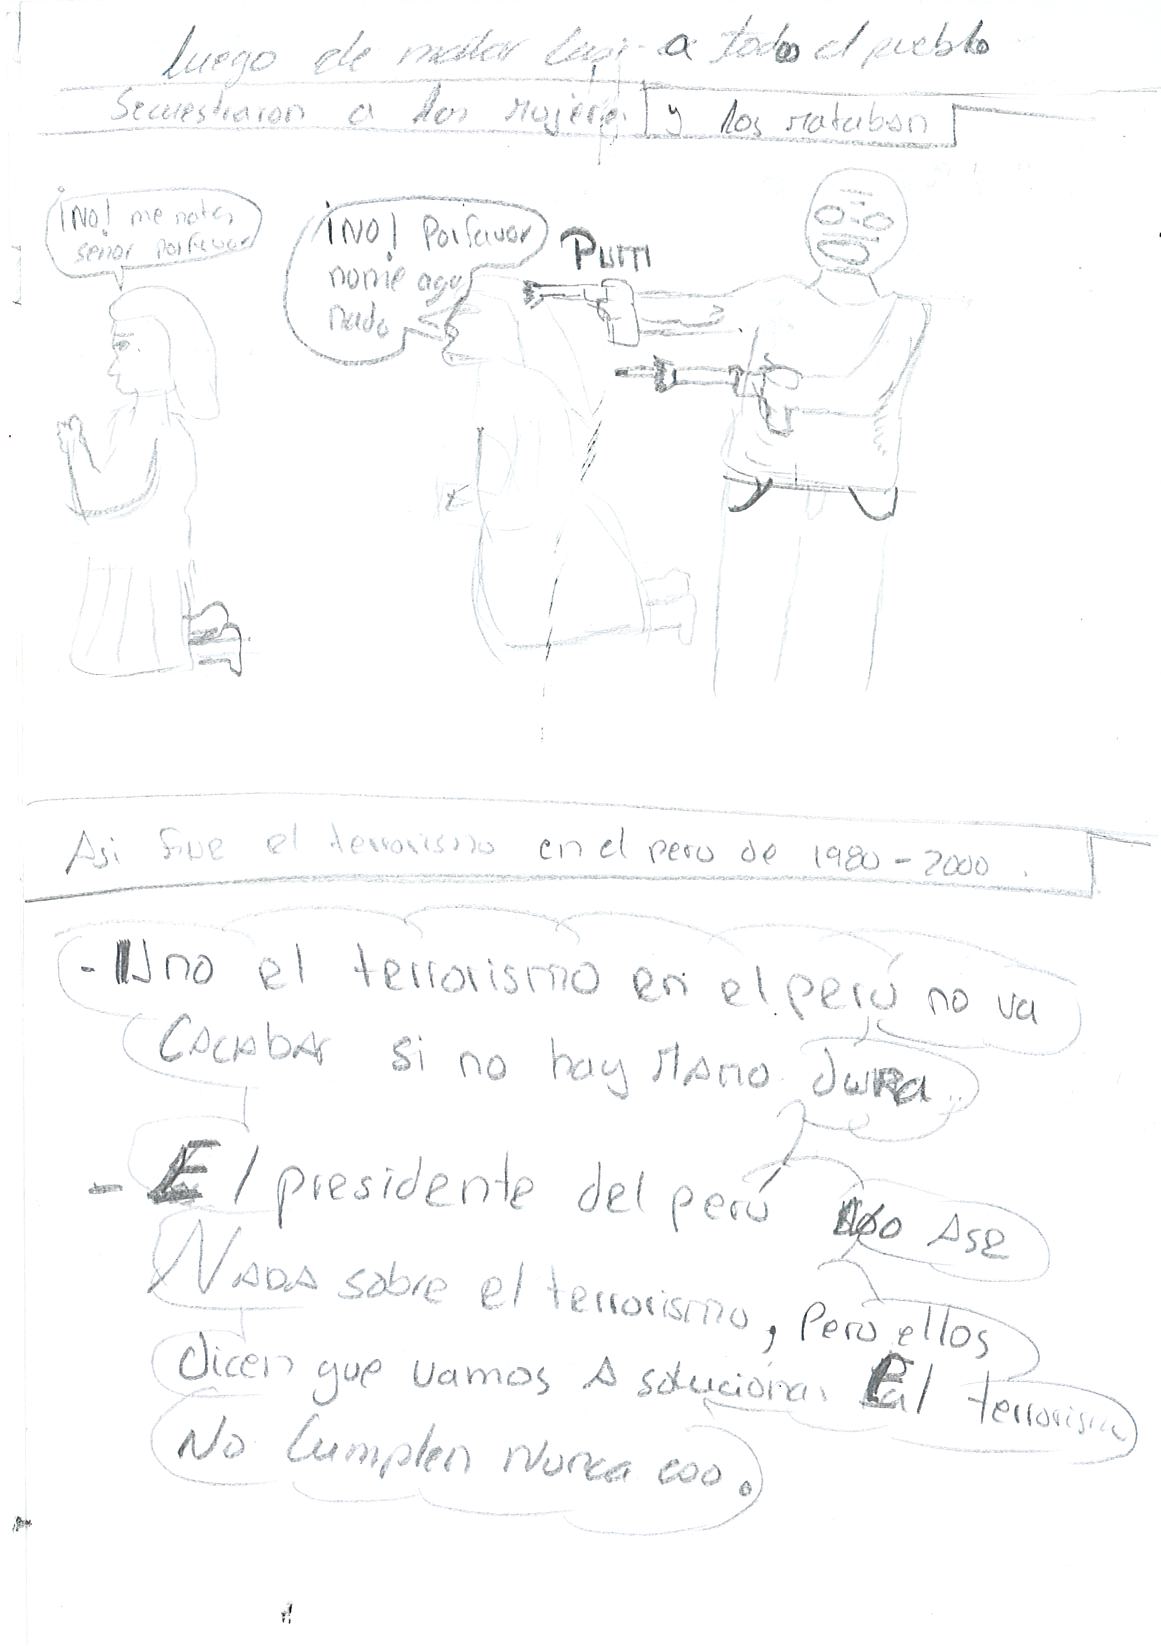 luego de matar casi a todo el pueblo
Secuestraron a las mujeres y los mataban
¡NO! me mates
señor porfavor
¡NO! Porfavor
nome aga
nada
Pum
Asi fue el terrorismo en el peru de 1980 - 2000.
- Uno el terrorismo en el perú no va
CACABAR si no hay MANO dura..
- El presidente del perú no ASE
NADA sobre el terrorismo, Pero ellos
dicen que vamos A solucionar al terrorismo
No Cumplen Nunca eso.